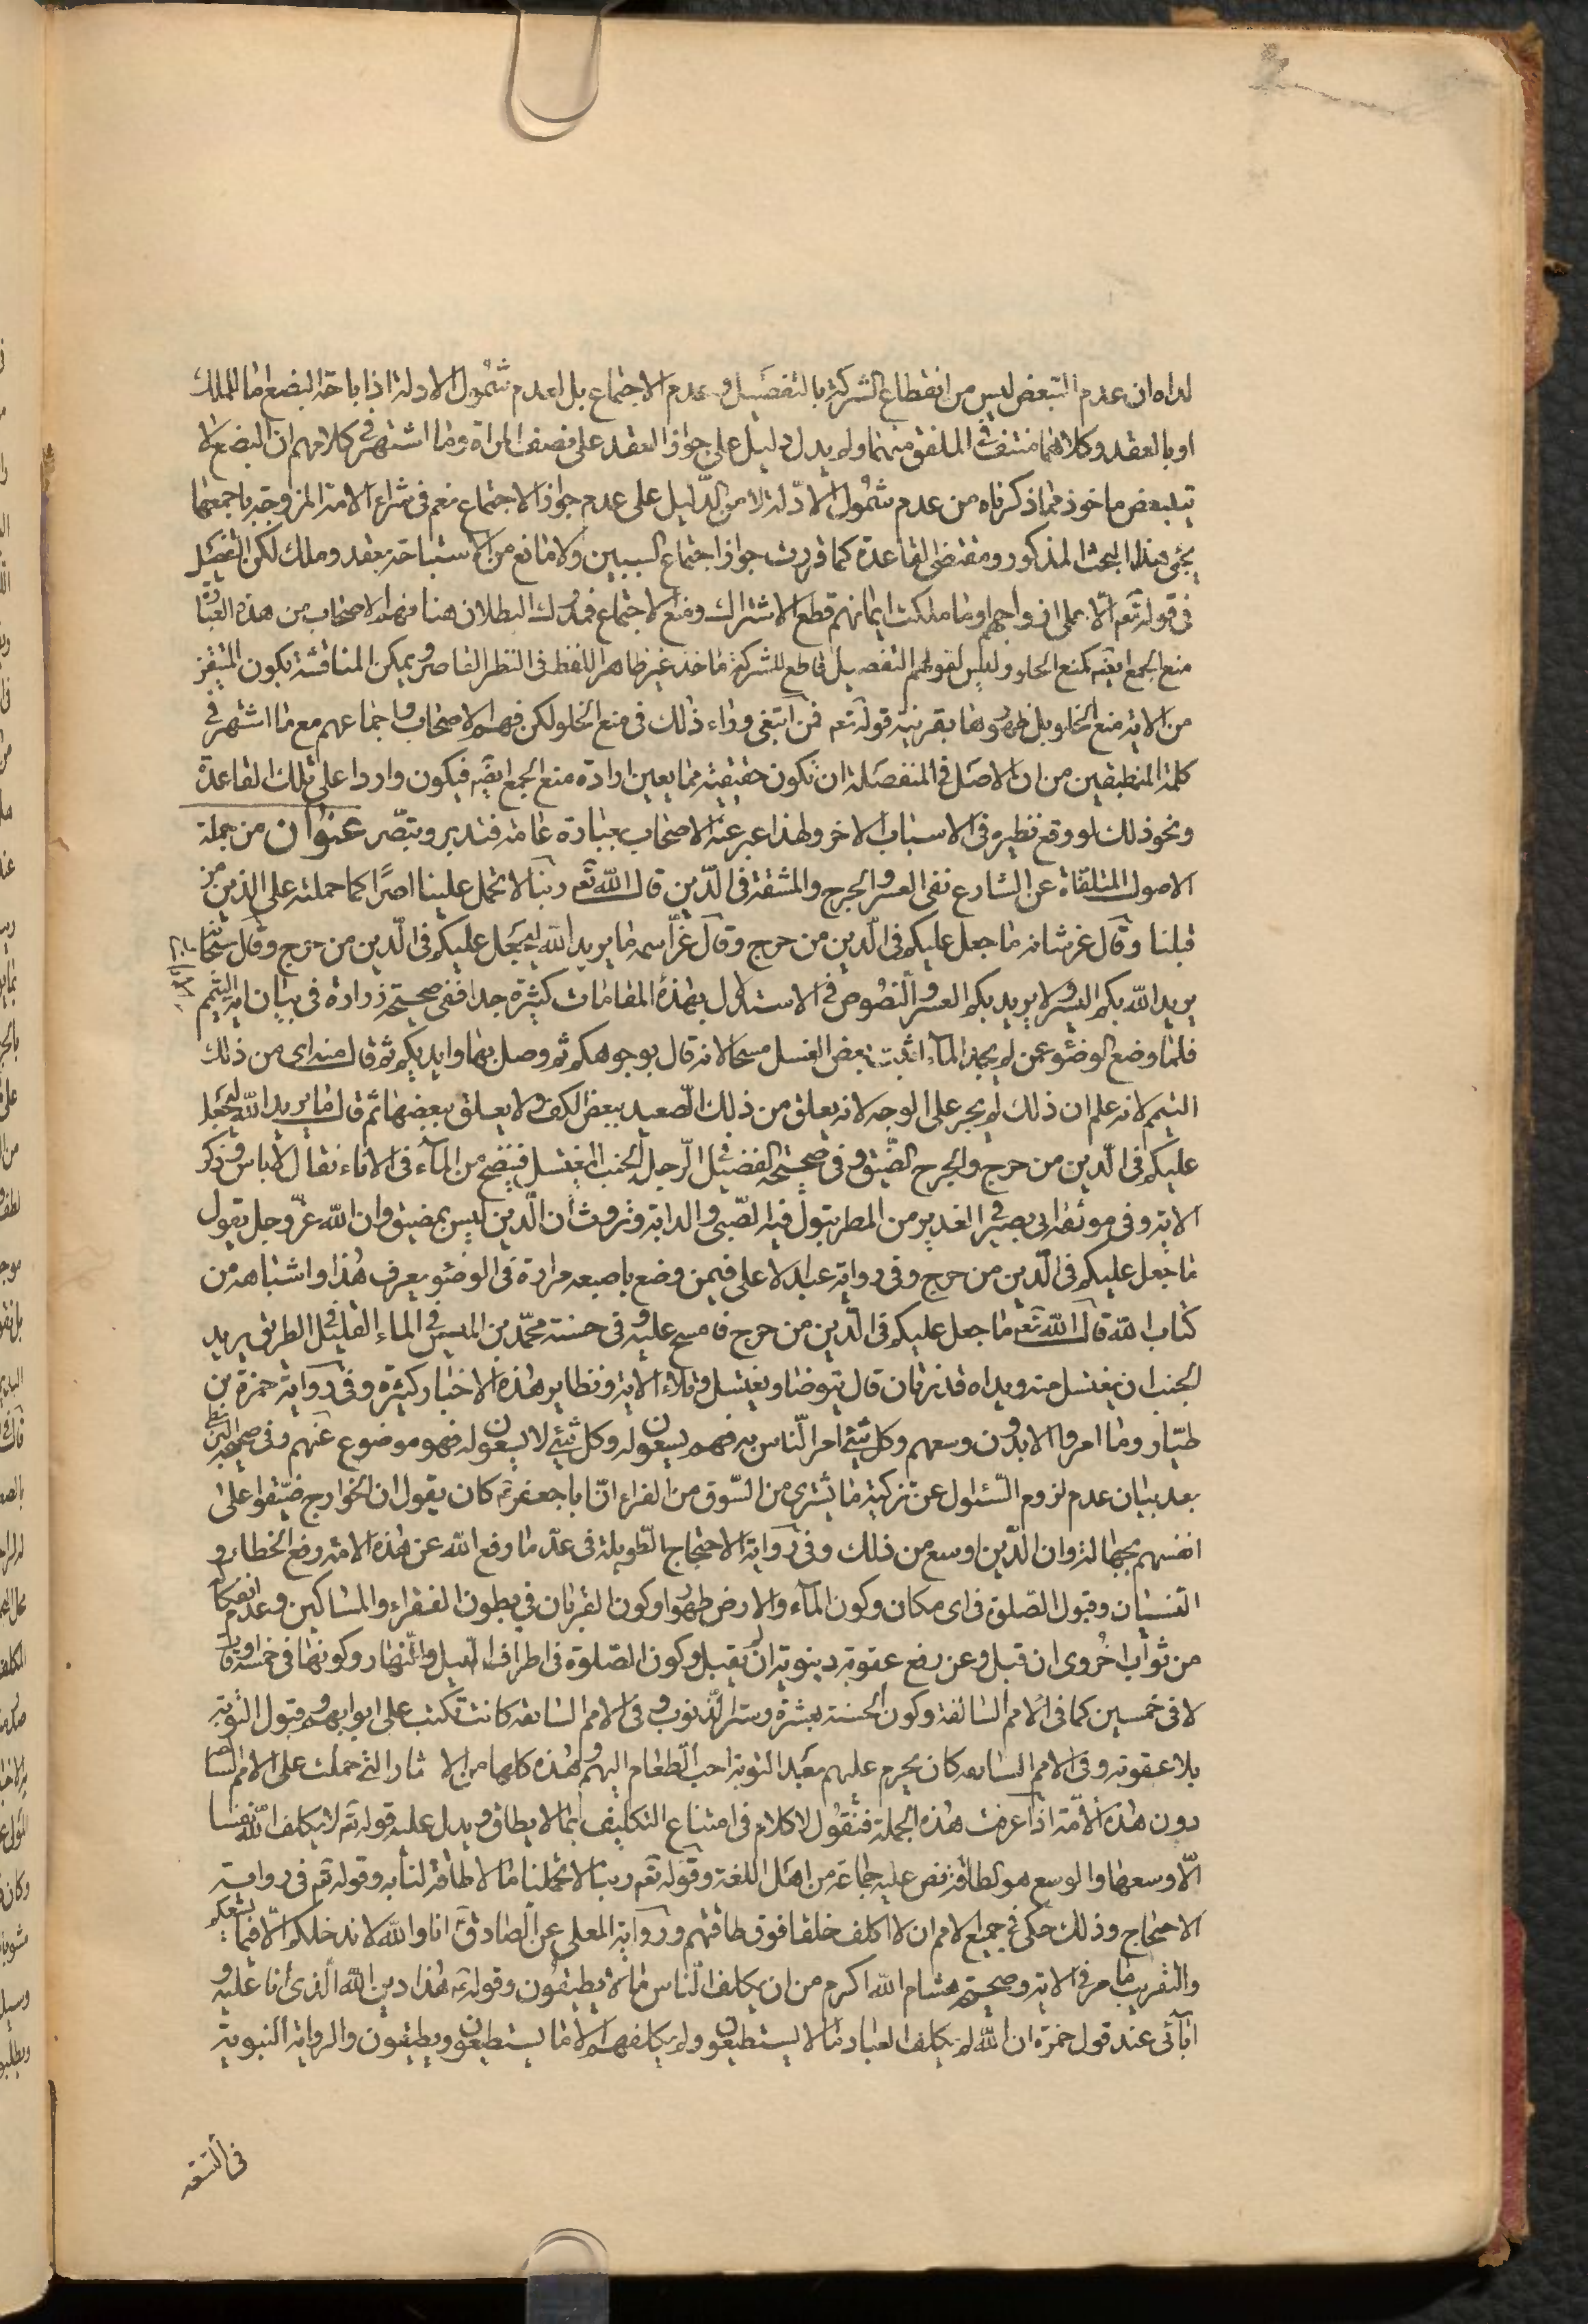 لدراه ان عدم التبعض ليس من انقطاع الشركة بالتفصيل و عدم الاجتماع بل لعدم شمول الادلة اذ اباحة البضع اما بالملك
او بالعقد وكلاهما منتف في الملفق منهما ولم يدل دليل على جواز العقد على نصف المراة وما اشتهر في كلامهم ان البضع لا
يتبعض ماخوذ مما ذكرناه من عدم شمول الادلة لا من الدليل على عدم جواز الاجتماع نعم في شراء الامة المزوجة باجمعها
يجئ هذا البحث المذكور ومقتضى القاعدة كما قررت جواز اجتماع السببين ولا مانع من الاستباحة بعقد وملك لكن التفصيل
في قوله تعم الا على ازواجهم او ما ملكت ايمانهم قطع الاشتراك ومنع الاجتماع فمدرك البطلان هنا فهم الاصحاب من هذه العبارة
منع الجمع ايضه كمنع الخلو وليس لقولهم التفصيل قاطع للشركة ماخذ غير ظاهر اللفظ في النظر القاصر ويمكن المناقشة بكون المتيقن
من الاية منع الخلو بل ظهورها بقرينة قوله تعم فمن ابتغى وراء ذلك في منع الخلو لكن فهم الاصحاب واجماعهم مع ما اشتهر في
كلمة المنطقيين من ان الاصل في المنفصلة ان تكون حقيقية مما يعين ارادة منع الجمع ايضه فيكون واردا على تلك القاعدة
ونحو ذلك لو وقع نظيره في الاسباب الاخر ولهذا عبر عنه الاصحاب بعبارة عامة فتدبر وتبصر عنوان من جملة
الاصول المتلقاة عن الشارع نفي العسر والحرج والمشقة في الدين قال الله تعم ربنا لا تحمل علينا اصرا كما حملته على الذين من
قبلنا وقال عز شانه ما جعل عليكم في الدين من حرج وقال عز اسمه ما يريد الله ليجعل عليكم في الدين من حرج وقال سبحانه
يريد الله بكم اليسر ولا يريد بكم العسر والنصوص في الاستدلال بهذه المقامات كثيرة جدا ففي صحيحة زرارة في بيان اية التيمم
فلما وضع الوضوء عمن لم يجد الماء اثبت بعض الغسل مسحا لانه قال بوجوهكم ثم وصل بها وايديكم ثم قال منه اى من ذلك
التيمم لانه علم ان ذلك لم يجر على الوجه لانه يعلق من ذلك الصعيد ببعض الكف ولا يعلق ببعضها ثم قال ما يريد الله ليجعل
عليكم في الدين من حرج والحرج الضيق وفي صحيحة الفضيل في الرجل الجنب المغتسل فينضح من الماء في الاناء فقال لا باس وذكر
الاية وفي موثقة ابي بصير في الغدير من المطر يبول فيه الصبي والدابة وتروث ان الدين ليس بمضيق وان الله عز وجل يقول
ما جعل عليكم في الدين من حرج وفي رواية عبد الاعلى فيمن وضع باصبعه مرارة في الوضوء يعرف هذا واشباهه من
كتاب الله قال الله تعم ما جعل عليكم في الدين من حرج فامسح عليه وفي حسنة محمد بن الميسر في الماء القليل في الطريق يريد
الجنب ان يغتسل منه ويداه قذرتان قال يتوضا ويغتسل وتلاء الاية ونظاير هذه الاخبار كثيرة وفي رواية حمزة بن
طيار وما امروا الا بدون وسعهم وكل شئ امر الناس به فهم يسعون له وكل شئ لا يسعون له فهو موضوع عنهم وفي صحيحة البزنطي
بعد بيان عدم لزوم السئوال عن تزكية ما يشترى من السوق من الفراء ان ابا جعفر ع كان يقول ان الخوارج ضيقوا على
انفسهم بجهالة وان الدين اوسع من ذلك وفي رواية الاحتجاج الطويلة في عد ما رفع الله عن هذه الامة رفع الخطاء و
النسيان وقبول الصلوة في اى مكان وكون الماء والارض طهورا وكون القربان في بطون الفقراء والمساكين وعدم انفكاكه
من ثواب اخروى ان قبل وعن رفع عقوبة دينوية ان لم يقبل وكون الصلوة في اطراف الليل والنهار وكونها في خمسة اوقات
لا في خمسين كما في الامم السالفة وكون الحسنة بعشرة وستر الذنوب وفي الامم السابقه كانت تكتب على ابوابهم وقبول التوبة
بلا عقوبة وفي الامم السابقه كان يحرم عليهم بعد التوبة احب الطعام اليهم وهذه كلها من الاثار التى حملت على الامم السابقة
دون هذه الامة اذا عرفت هذه الجملة فنقول لا كلام في امتناع التكليف بما لا يطاق ويدل عليه قوله تعم لا يكلف الله نفسا
الا وسعها والوسع هو الطاقة نص عليه جماعة من اهل اللغة وقوله تعم ربنا لا تحملنا ما لا طاقة لنا به وقوله تعم في رواية
الاحتجاج وذلك حكمى في جميع الامم ان لا اكلف خلقا فوق طاقتهم ورواية المعلى عن الصادق ع انا والله لا ندخلكم الا فيما يسعكم
والتقريب ما مر في الاية وصحيحة هشام الله اكرم من ان يكلف الناس ما لا يطيقون وقوله ع هذا دين الله الذى انا عليه و
ابائى عند قول حمزة ان الله لم يكلف العباد ما لا يستطيعون ولم يكلفهم الا ما يستطيعون ويطيقون والرواية النبوية
في التسعة